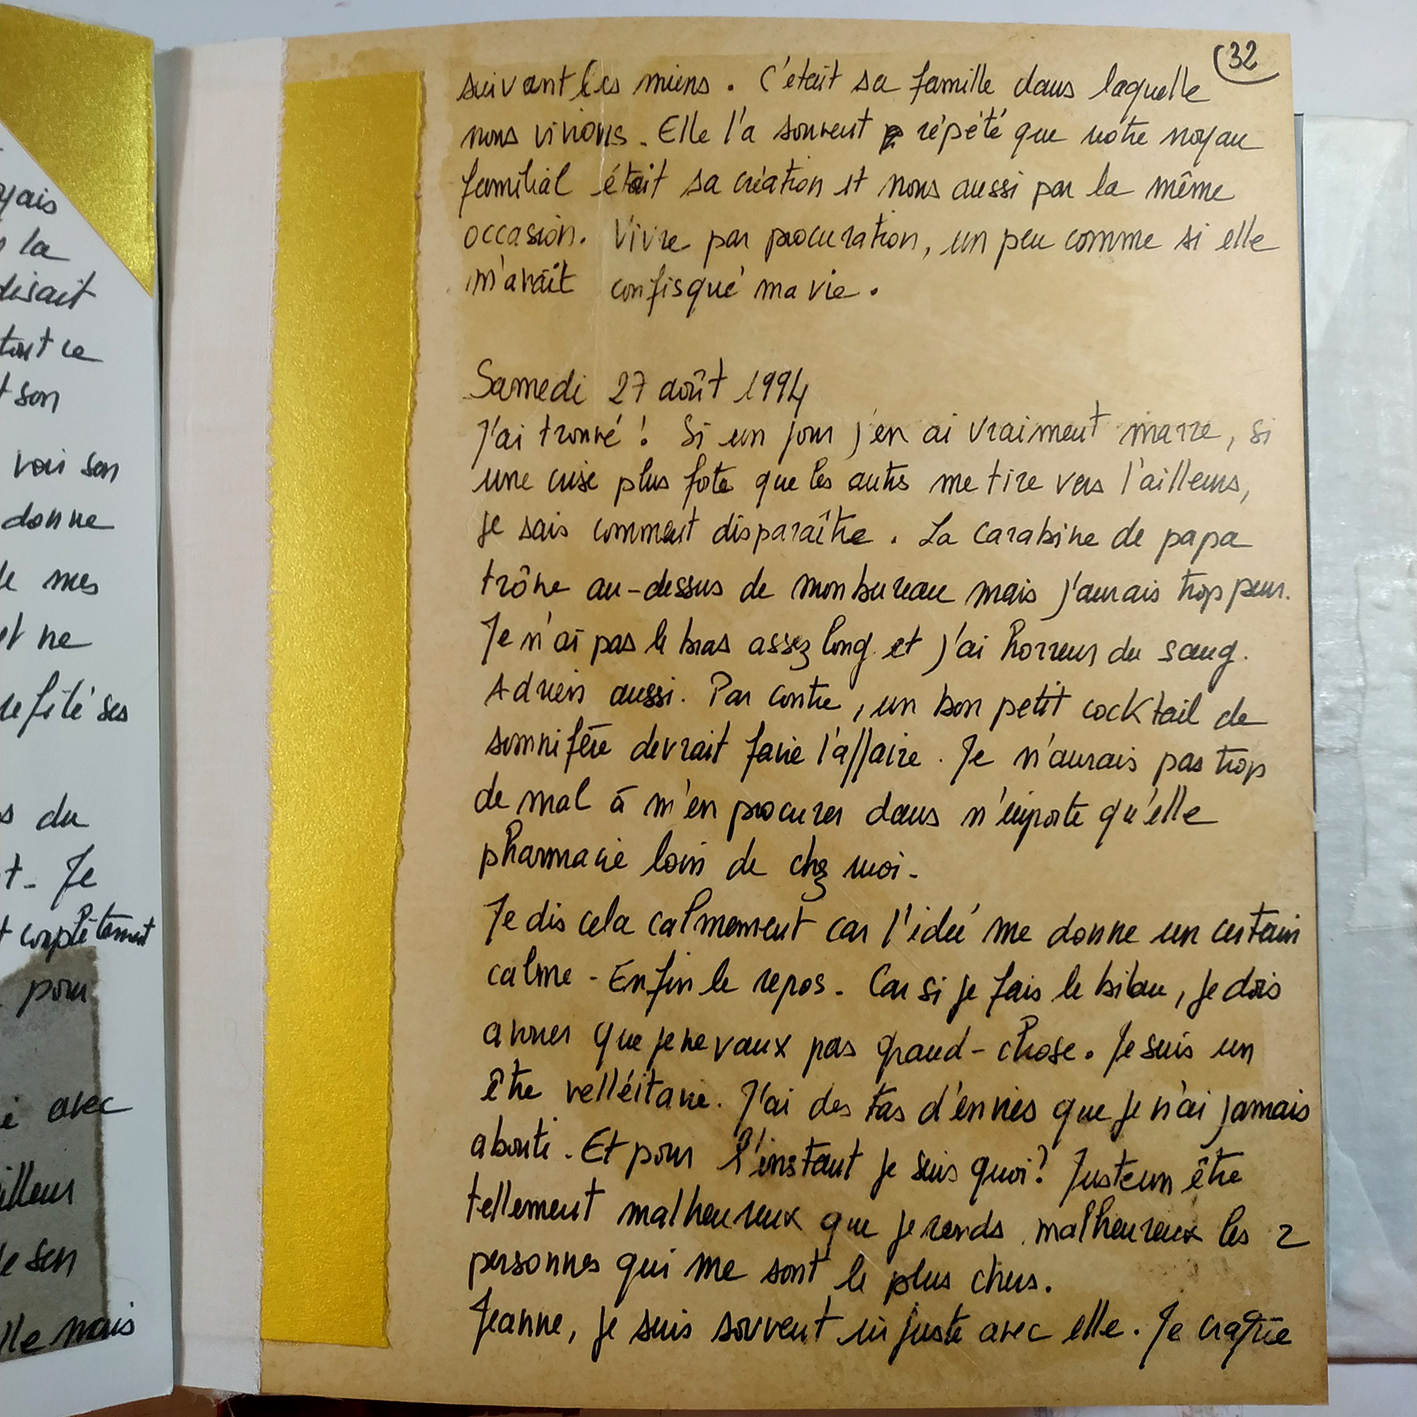 32
suivant les miens. C'était sa famille dans laquelle
nous vivions. Elle l'a souvent répété que notre noyau
familial était sa création et nous aussi par la même
occasion. Vivre par procuration, un peu comme si elle
m'avait confisqué ma vie.
Samedi 27 août 1994
J'ai trouvé ! Si un jour j'en ai vraiment marre, si
une crise plus forte que les autres me tire vers l'ailleurs,
je sais comment disparaître. La carabine de papa
trône au-dessus de mon bureau mais j'aurais trop peur.
Je n'ai pas le bras assez long et j'ai horreur du sang.
Adrien aussi. Par contre, un bon petit cocktail de
somnifère devrait faire l'affaire. Je n'aurais pas trop
de mal à m'en procurer dans n'importe qu'elle
pharmacie loin de chez moi.
Je dis cela calmement car l'idée me donne un certain
calme - Enfin le repos. Car si je fais le bilan, je dois
avouer que je ne vaux pas grand-chose. Je suis un
être velléitaire. J'ai des tas d'envies que je n'ai jamais
abouti. Et pour l'instant je suis quoi? Juste un être
tellement malheureux que je rends malheureux les 2
personnes qui me sont le plus chers.
Jeanne, je suis souvent injuste avec elle. Je
la
disait
tout ce
son
voir son
donne
mes
et ne
ses
du
Je
complètement
pour
avec
son
mais